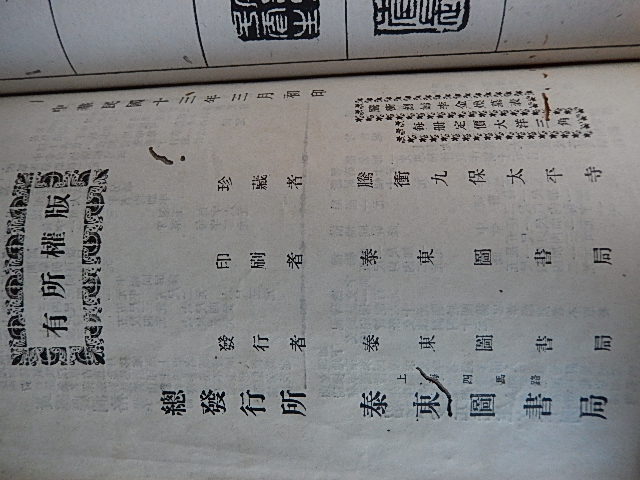 中華民國十三年三月初印
每冊定價大洋三角
珍藏者 騰衝九保太平寺
印刷者 泰東圖書局
發行者 泰東圖書局
上海四馬路
總發行所 泰東圖書局
版權所有